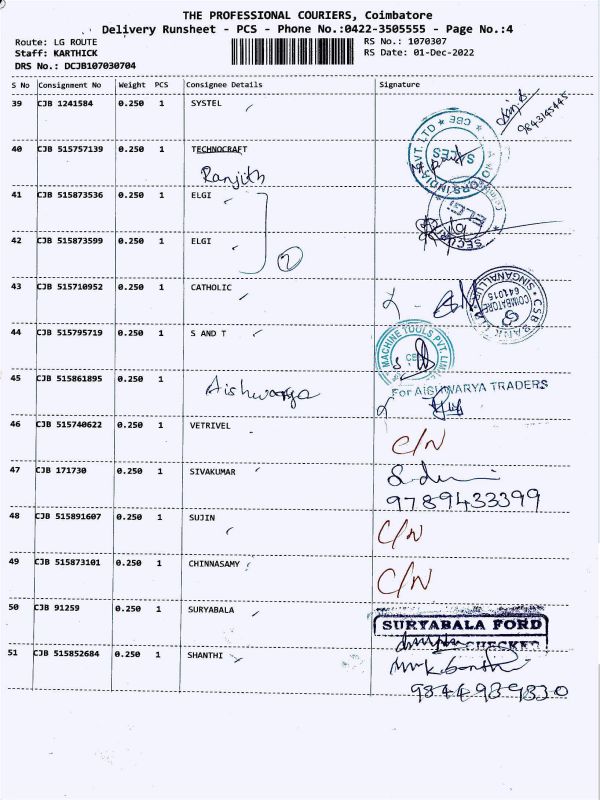 THE PROFESSIONAL COURIERS, Coimbatore
Delivery Runsheet - PCS - Phone No.:0422-3505555 - Page No.:4
Route: LG ROUTE RS No.: 1070307
Staff: KARTHICK RS Date: 01-Dec-2022
DRS No.: DCJB107030704
S No Consignment No Weight PCS Consignee Details Signature
39 CJB 1241584 0.250 1 SYSTEL
9843145445
40 CJB 515757139 0.250 1 TECHNOCRAFT
Ranjith
41 CJB 515873536 0.250 1 ELGI
ELGI
SECURITY
42 CJB 515873599 0.250 1 ELGI
2
43 CJB 515710952 0.250 1 CATHOLIC
CSB BANK
SINGANALLUR
COIMBATORE
641015
44 CJB 515795719 0.250 1 S AND T
MACHINE TOOLS PVT. LIM
45 CJB 515861895 0.250 1 Aishwarya
For AISHWARYA TRADERS
46 CJB 515740622 0.250 1 VETRIVEL C/N
47 CJB 171730 0.250 1 SIVAKUMAR
9789433399
48 CJB 515891607 0.250 1 SUJIN C/N
49 CJB 515873101 0.250 1 CHINNASAMY C/N
50 CJB 91259 0.250 1 SURYABALA
SURYABALA FORD
CHECKED
51 CJB 515852684 0.250 1 SHANTHI
9844989830